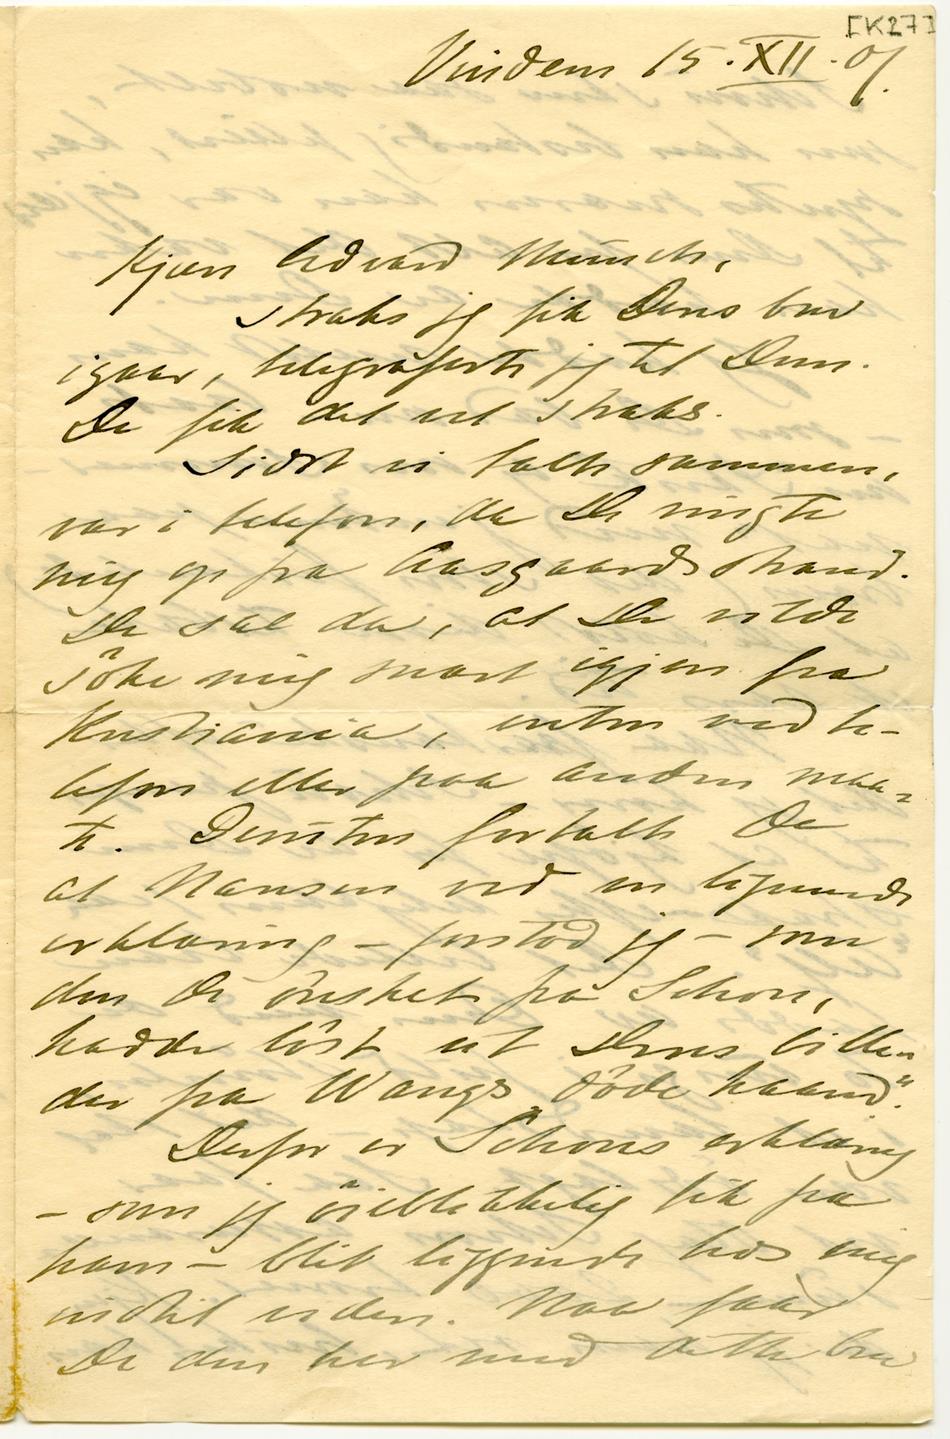 [K27]
Vindern 15. XII. 07.
Kjære Edvard Munch,
straks jeg fik Deres brev
igaar, telegraferte jeg til Dem.
De fik det vel straks.
Sidst vi talte sammen,
var i telefon, da De ringte
mig op fra Aasgaardsstrand.
De sa da, at De vilde
söke mig snart igjen fra
Kristiania, enten ved te-
lefon eller paa anden maa-
te. Desuten fortalte De
at Hansen ved en lignende
erklæring – forstod jeg – som
den De önsket fra Schou,
hadde löst ut Deres bille-
der fra Wangs "döde haand".
Derfor er Schous erklæring
– som jeg öieblikkelig fik fra
ham – blit liggende hos mig
indtil videre. Naa faar
De den her med dette brev